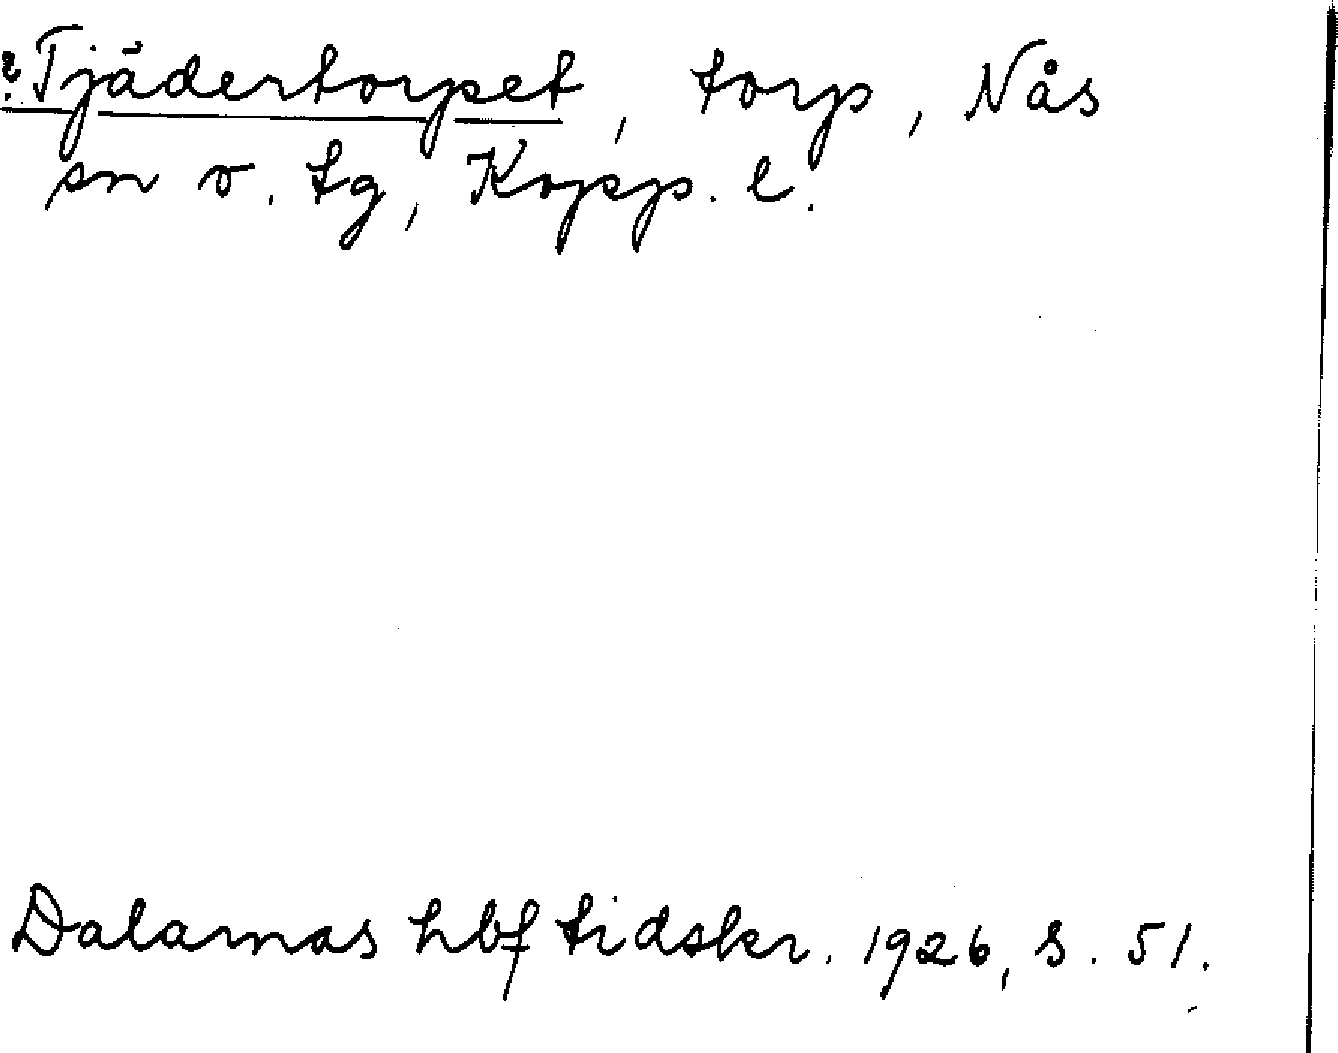 ? Tjädertorpet, torp, Nås
sn v. tg, Kopp. l.
Dalarnas hbf tidskr. 1926, s. 51.